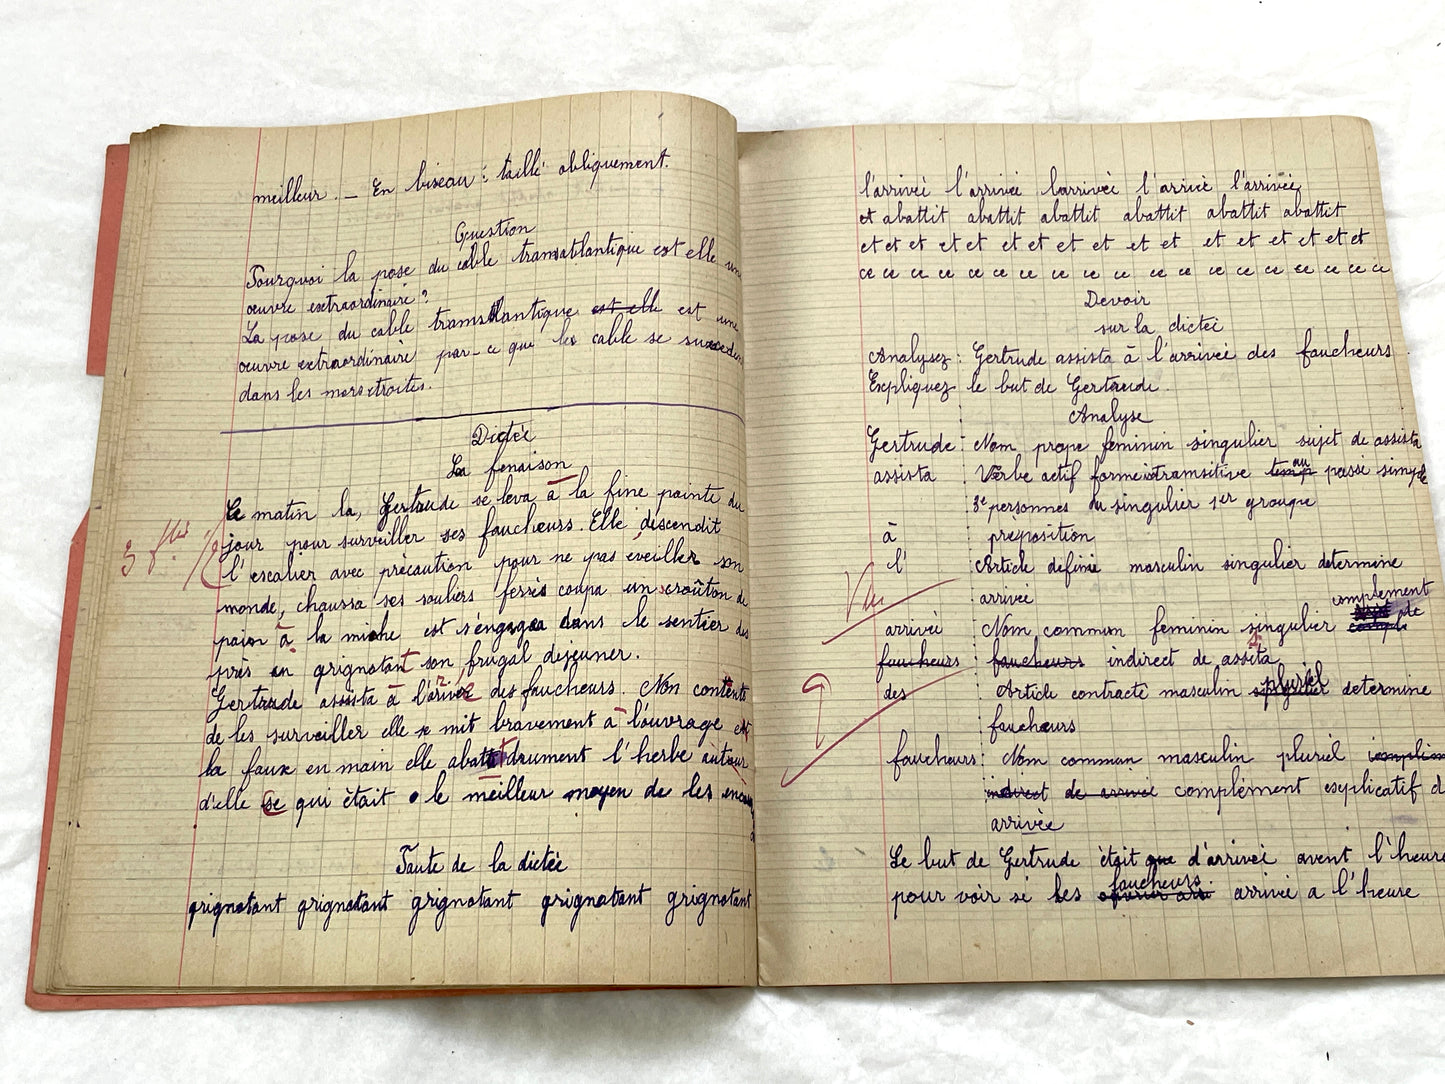 meilleur. — En biseau : taillé obliquement.
Question
Pourquoi la pose du cable transatlantique est elle une
œuvre extraordinaire ?
La pose du cable transatlantique est elle est une
œuvre extraordinaire par-ce que les cable se succedent
dans les mers
Dictée
La fenaison
Ce matin la, Gertrude se leva à la fine pointe du
jour pour surveiller ses faucheurs. Elle descendit
l'escalier avec précaution pour ne pas éveiller son
monde, chaussa ses souliers ferrés coupa un croûton de
pain à la miche est s'engagea dans le sentier des
près en grignotant son frugal déjeuner.
Gertrude assista à l'arrivée des faucheurs. Non contente
de les surveiller elle se mit bravement à l'ouvrage et
la faux en main elle abattit drument l'herbe autour
d'elle ce qui était le meilleur moyen de les
Faute de la dictée
grignotant grignotant grignotant grignotant grignotant
3 f
Vu
l'arrivée l'arrivée l'arrivée l'arrivé l'arrivée
et abattit abattit abattit abattit abattit abattit
et et et et et et et et et et et et et et et et et
ce ce ce ce ce ce ce ce ce ce ce ce ce ce ce ce ce
Devoir
sur la dictée
Analysez : Gertrude assista à l'arrivée des faucheurs.
Expliquez le but de Gertrude.
Analyse
Gertrude : Nom propre feminin singulier sujet de assista
assista : Verbe actif forme transitive temp au passé simple
3e personnes du singulier 1er groupe
à : préposition
l' : Article défini masculin singulier determine
arrivée
arrivée : Nom commun feminin singulier complement
faucheurs : faucheurs indirect de assita
des : Article contracté masculin pluriel determine
faucheurs
faucheurs : Nom commun masculin pluriel complém
indirect de arrivée complément explicatif d
arrivée
Le but de Gertrude était que d'arrivée avent l'heure
pour voir si les faucheurs arrivé a l'heure